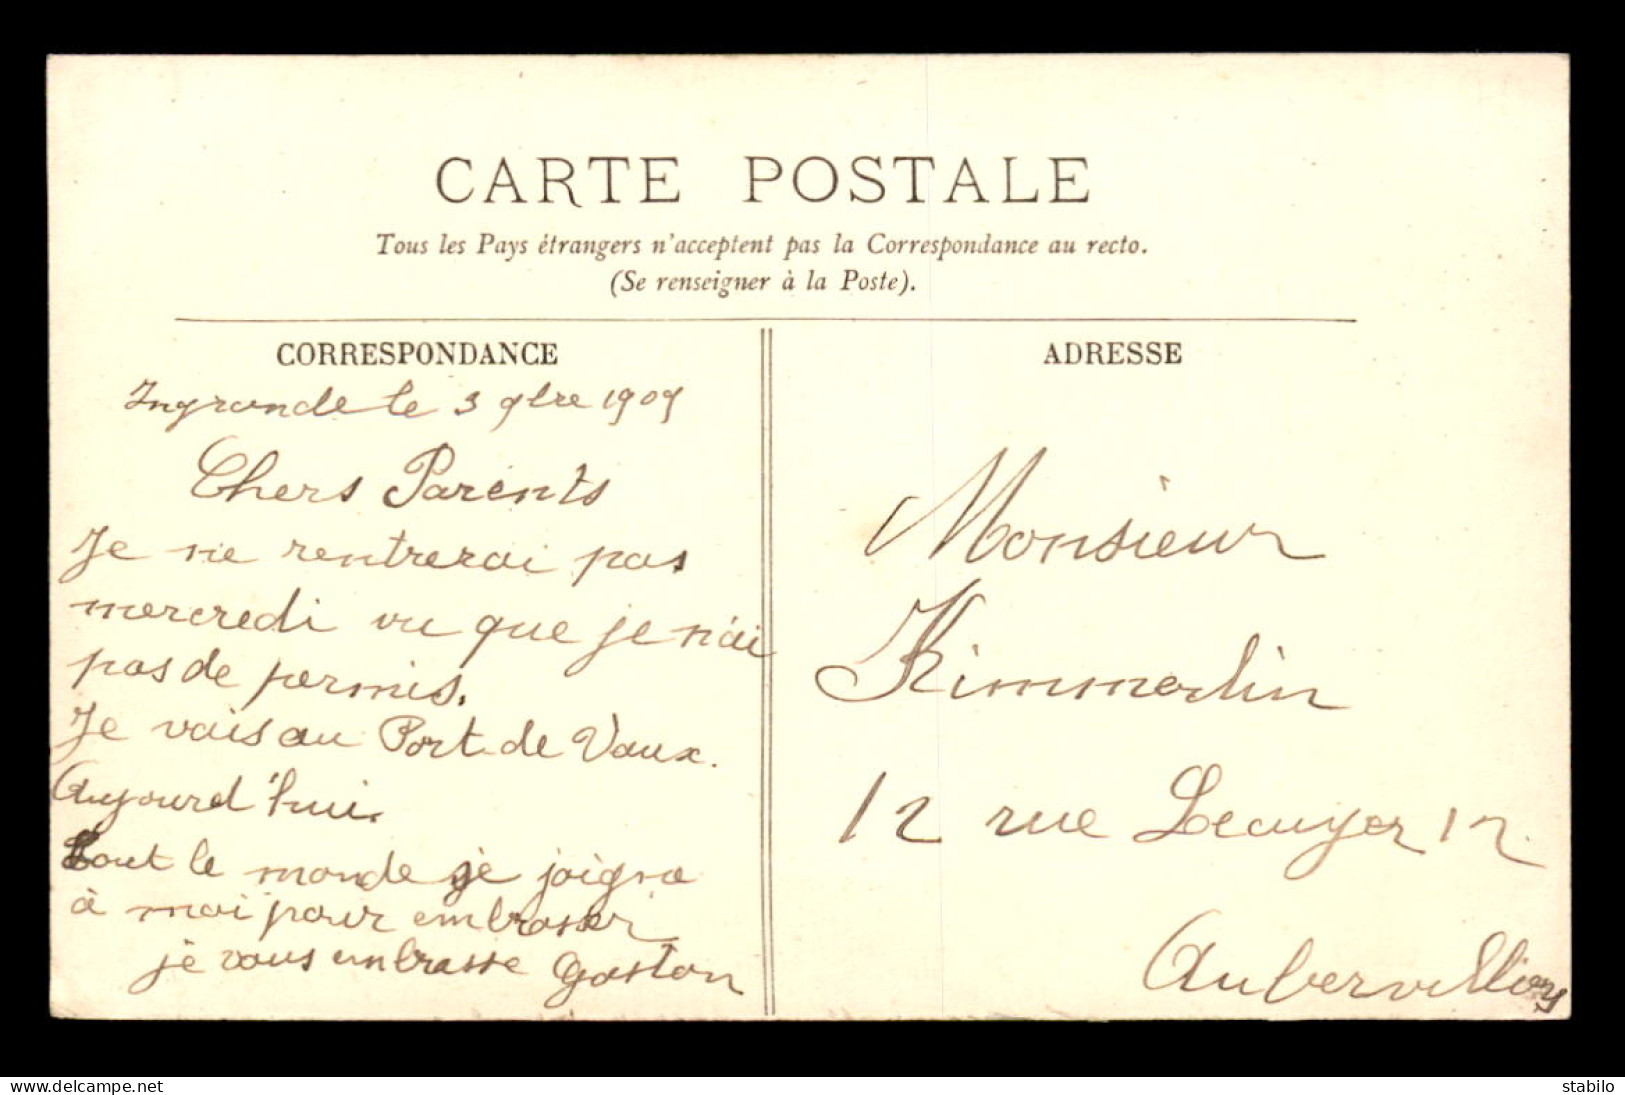 CARTE POSTALE
Tous les Pays étrangers n'acceptent pas la Correspondance au recto.
(Se renseigner à la Poste).
CORRESPONDANCE
Ingrande le 3 9bre 1909
Chers Parents
Je ne rentrerai pas
mercredi vu que je n'ai
pas de permis.
Je vais au Port-de Vaux.
Aujourd'hui.
Tout le monde se joigna
à moi pour embrasser
je vous embrasse Gaston
ADRESSE
Monsieur
Kimmerlin
12 rue Lecuyer 12
Aubervilliers
www.delcampe.net
stabilo